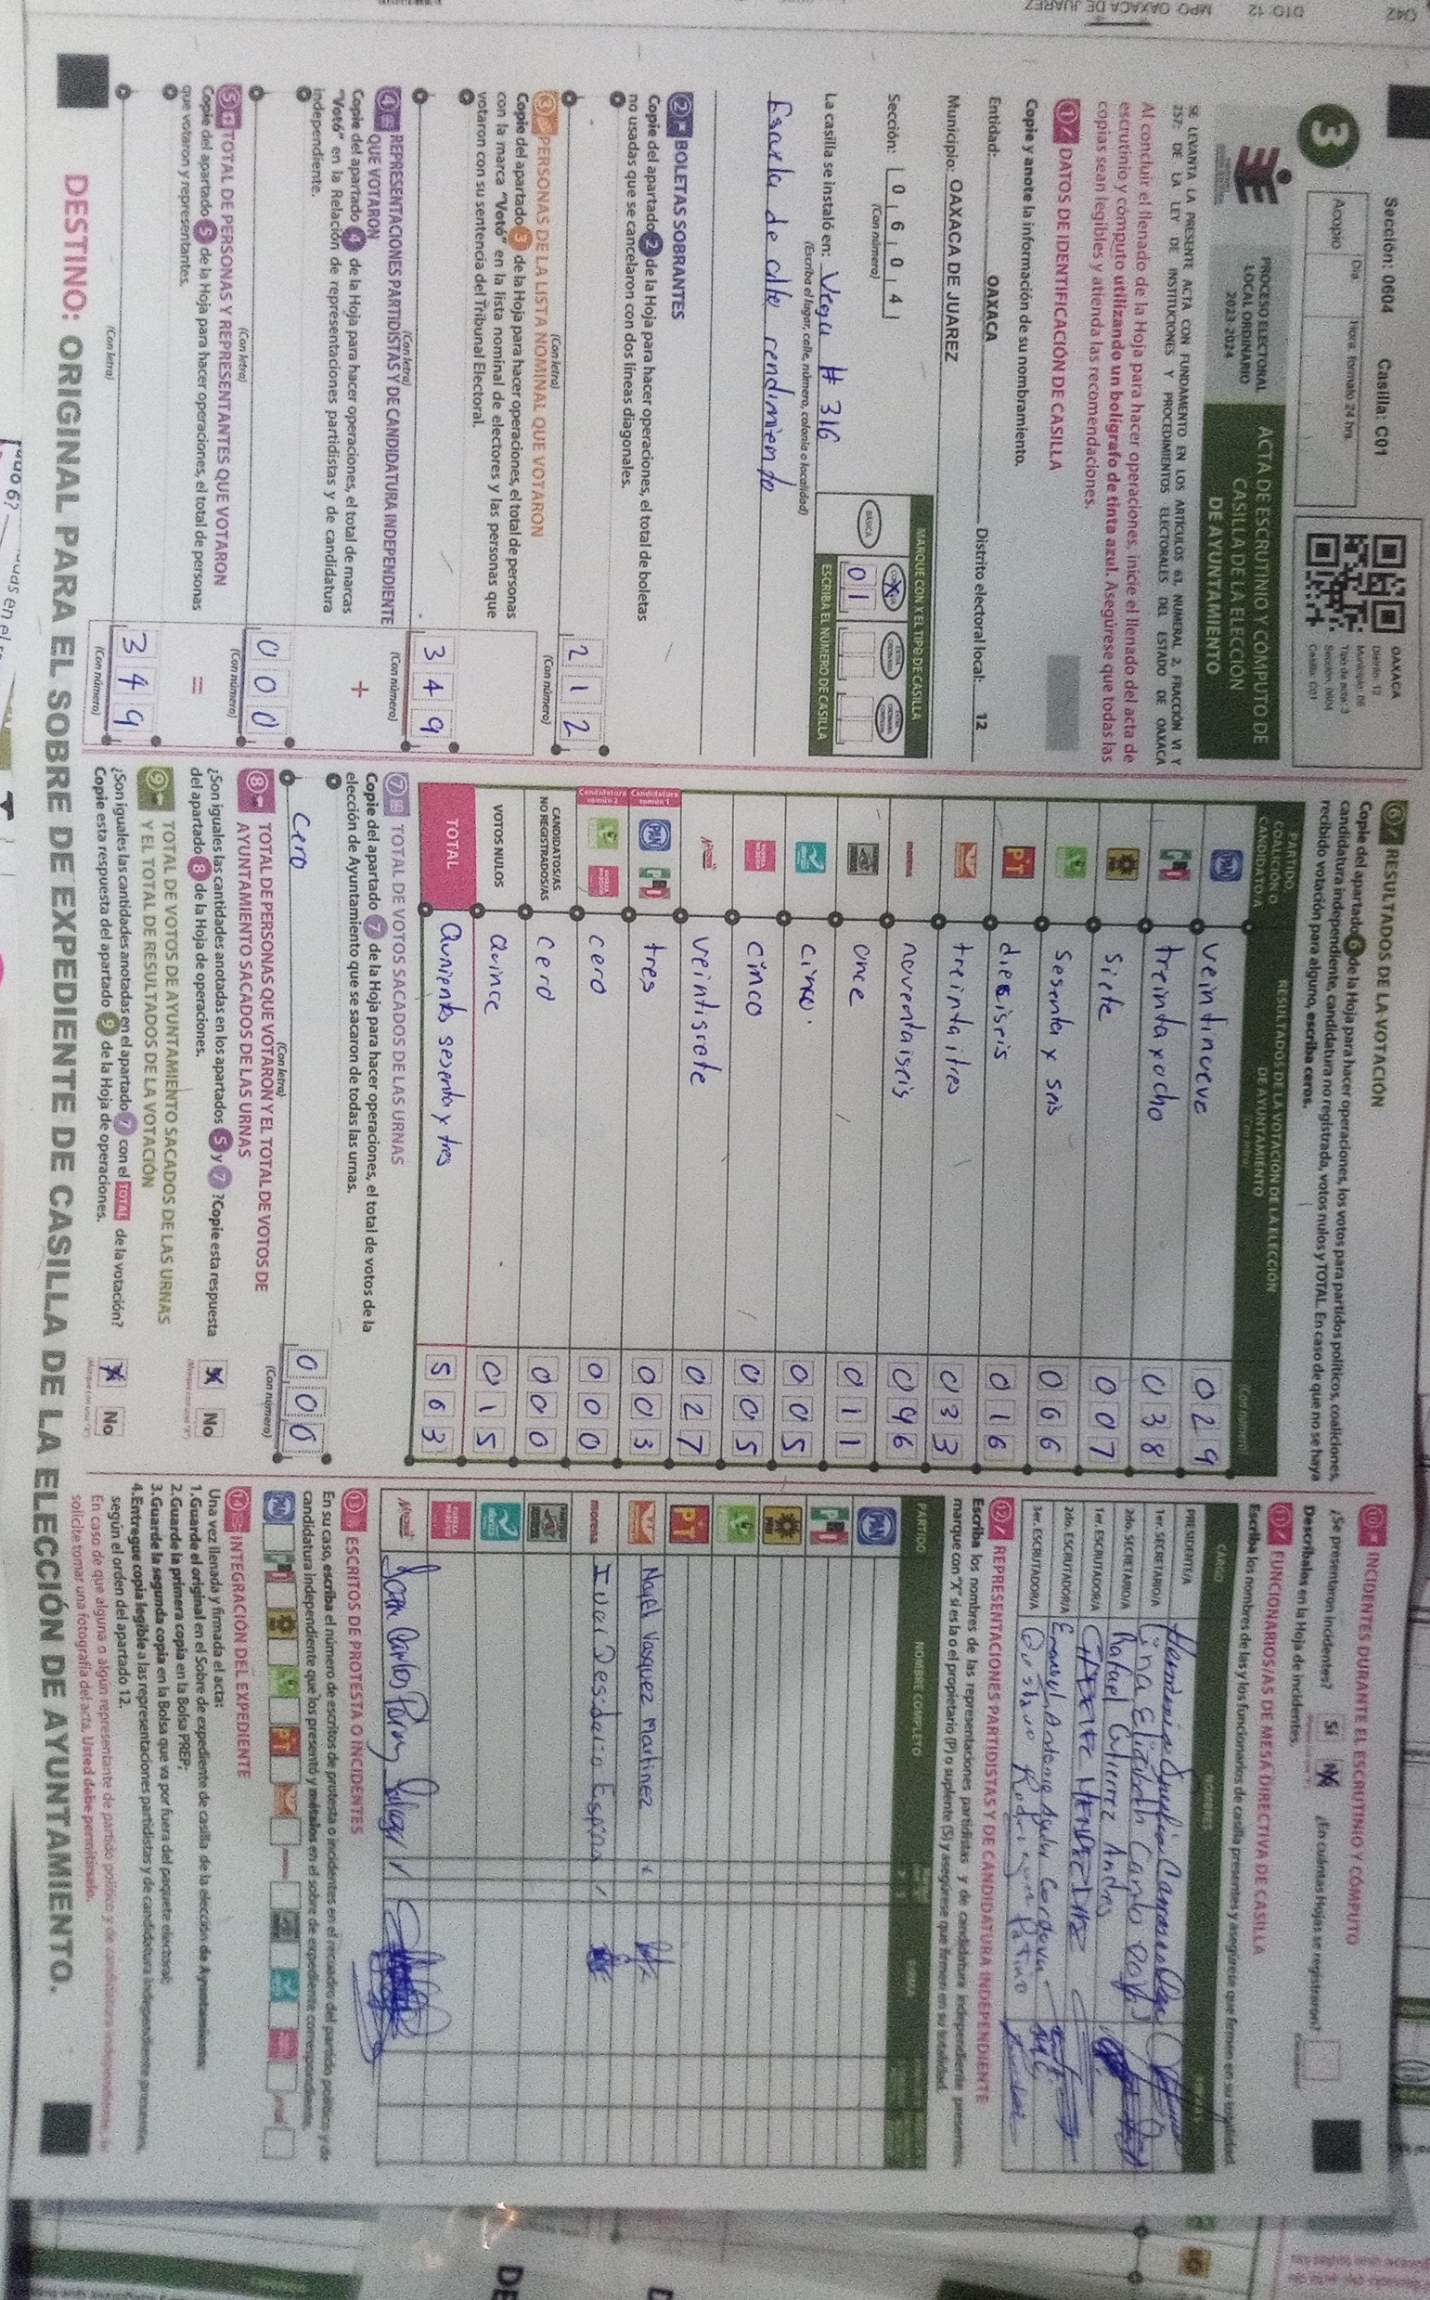 Sección: 0604 Casilla: C01
3
Día Hora: formato 24 hrs.
Acopio
OAXACA
Distrito: 12
Municipio: 06
Tipo de acta: 3
Sección: 0604
Casilla: C01
PROCESO ELECTORAL
LOCAL ORDINARIO
2023-2024
ACTA DE ESCRUTINIO Y CÓMPUTO DE
CASILLA DE LA ELECCIÓN
DE AYUNTAMIENTO
SE LEVANTA LA PRESENTE ACTA CON FUNDAMENTO EN LOS ARTÍCULOS 63, NUMERAL 2, FRACCIÓN VI Y
257; DE LA LEY DE INSTITUCIONES Y PROCEDIMIENTOS ELECTORALES DEL ESTADO DE OAXACA
Al concluir el llenado de la Hoja para hacer operaciones, inicie el llenado del acta de
escrutinio y cómputo utilizando un bolígrafo de tinta azul. Asegúrese que todas las
copias sean legibles y atienda las recomendaciones.
1 DATOS DE IDENTIFICACIÓN DE CASILLA
Copie y anote la información de su nombramiento.
Entidad: OAXACA Distrito electoral local: 12
Municipio: OAXACA DE JUAREZ
Sección: 0 6 0 4
(Con número)
MARQUE CON X EL TIPO DE CASILLA
BÁSICA
0 1
ESCRIBA EL NÚMERO DE CASILLA
La casilla se instaló en: Vega # 316
(Escriba el lugar, calle, número, colonia o localidad)
Escuela de alto rendimiento
2 BOLETAS SOBRANTES
Copie del apartado 2 de la Hoja para hacer operaciones, el total de boletas
no usadas que se cancelaron con dos líneas diagonales.
2 1 2
(Con letra) (Con número)
3 PERSONAS DE LA LISTA NOMINAL QUE VOTARON
Copie del apartado 3 de la Hoja para hacer operaciones, el total de personas
con la marca "Votó" en la lista nominal de electores y las personas que
votaron con su sentencia del Tribunal Electoral.
3 4 9
(Con letra) (Con número)
4 REPRESENTACIONES PARTIDISTAS Y DE CANDIDATURA INDEPENDIENTE
QUE VOTARON
Copie del apartado 4 de la Hoja para hacer operaciones, el total de marcas
"Votó" en la Relación de representaciones partidistas y de candidatura
independiente.
+
0 0 0
(Con letra) (Con número)
5 TOTAL DE PERSONAS Y REPRESENTANTES QUE VOTARON
Copie del apartado 5 de la Hoja para hacer operaciones, el total de personas
que votaron y representantes.
=
3 4 9
(Con letra) (Con número)
6 RESULTADOS DE LA VOTACIÓN
Copie del apartado 6 de la Hoja para hacer operaciones, los votos para partidos políticos, coaliciones,
candidatura independiente, candidatura no registrada, votos nulos y TOTAL. En caso de que no se haya
recibido votación para alguno, escriba ceros.
PARTIDO,
COALICIÓN O
CANDIDATO/A
RESULTADOS DE LA VOTACIÓN DE LA ELECCIÓN
DE AYUNTAMIENTO
(Con letra) (Con número)
PAN veintinueve 0 2 9
PRI treinta y ocho 0 3 8
PRD siete 0 0 7
sesenta y seis 0 6 6
PT dieciseis 0 1 6
treinta i tres 0 3 3
morena noventaiseis 0 9 6
once 0 1 1
cinco. 0 0 5
cinco 0 0 5
veintisiete 0 2 7
Candidatura común 1 PAN PRI tres 0 0 3
Candidatura común 2 cero 0 0 0
CANDIDATOS/AS
NO REGISTRADOS/AS cero 0 0 0
VOTOS NULOS quince 0 1 5
TOTAL quinientos sesenta y tres 5 6 3
7 TOTAL DE VOTOS SACADOS DE LAS URNAS
Copie del apartado 7 de la Hoja para hacer operaciones, el total de votos de la
elección de Ayuntamiento que se sacaron de todas las urnas.
cero 0 0 0
(Con letra) (Con número)
8 TOTAL DE PERSONAS QUE VOTARON Y EL TOTAL DE VOTOS DE
AYUNTAMIENTO SACADOS DE LAS URNAS
¿Son iguales las cantidades anotadas en los apartados 5 y 7 ?Copie esta respuesta
del apartado 8 de la Hoja de operaciones.
No
9 TOTAL DE VOTOS DE AYUNTAMIENTO SACADOS DE LAS URNAS
Y EL TOTAL DE RESULTADOS DE LA VOTACIÓN
¿Son iguales las cantidades anotadas en el apartado 7 con el TOTAL de la votación?
Copie esta respuesta del apartado 9 de la Hoja de operaciones.
No
10 INCIDENTES DURANTE EL ESCRUTINIO Y CÓMPUTO
¿Se presentaron incidentes? Sí No ¿En cuántas Hojas se registraron?
Descríbalos en la Hoja de incidentes.
11 FUNCIONARIOS/AS DE MESA DIRECTIVA DE CASILLA
Escriba los nombres de las y los funcionarios de casilla presentes y asegúrese que firmen en su totalidad.
CARGO NOMBRES FIRMAS
PRESIDENTE/A
1er. SECRETARIO/A
2do. SECRETARIO/A Rafael Gutierrez Andres
1er. ESCRUTADOR/A
2do. ESCRUTADOR/A
3er. ESCRUTADOR/A Gustavo Rodriguez Patiño
12 REPRESENTACIONES PARTIDISTAS Y DE CANDIDATURA INDEPENDIENTE
Escriba los nombres de las representaciones partidistas y de candidatura independiente presentes,
marque con "X" si es la o el propietario (P) o suplente (S) y asegúrese que firmen en su totalidad.
PARTIDO NOMBRE COMPLETO FIRMA
PAN
PRI
PRD
PT
Nayel Vasquez Martinez
morena
13 ESCRITOS DE PROTESTA O INCIDENTES
En su caso, escriba el número de escritos de protesta o incidentes en el recuadro del partido político y de
candidatura independiente que los presentó y métalos en el sobre de expediente correspondiente.
14 INTEGRACIÓN DEL EXPEDIENTE
Una vez llenada y firmada el acta:
1.Guarde el original en el Sobre de expediente de casilla de la elección de Ayuntamiento;
2.Guarde la primera copia en la Bolsa PREP;
3.Guarde la segunda copia en la Bolsa que va por fuera del paquete electoral;
4.Entregue copia legible a las representaciones partidistas y de candidatura independiente presentes,
según el orden del apartado 12.
En caso de que alguna o algún representante de partido político y de candidatura independiente, le
solicite tomar una fotografía del acta. Usted debe permitírselo.
DESTINO: ORIGINAL PARA EL SOBRE DE EXPEDIENTE DE CASILLA DE LA ELECCIÓN DE AYUNTAMIENTO.